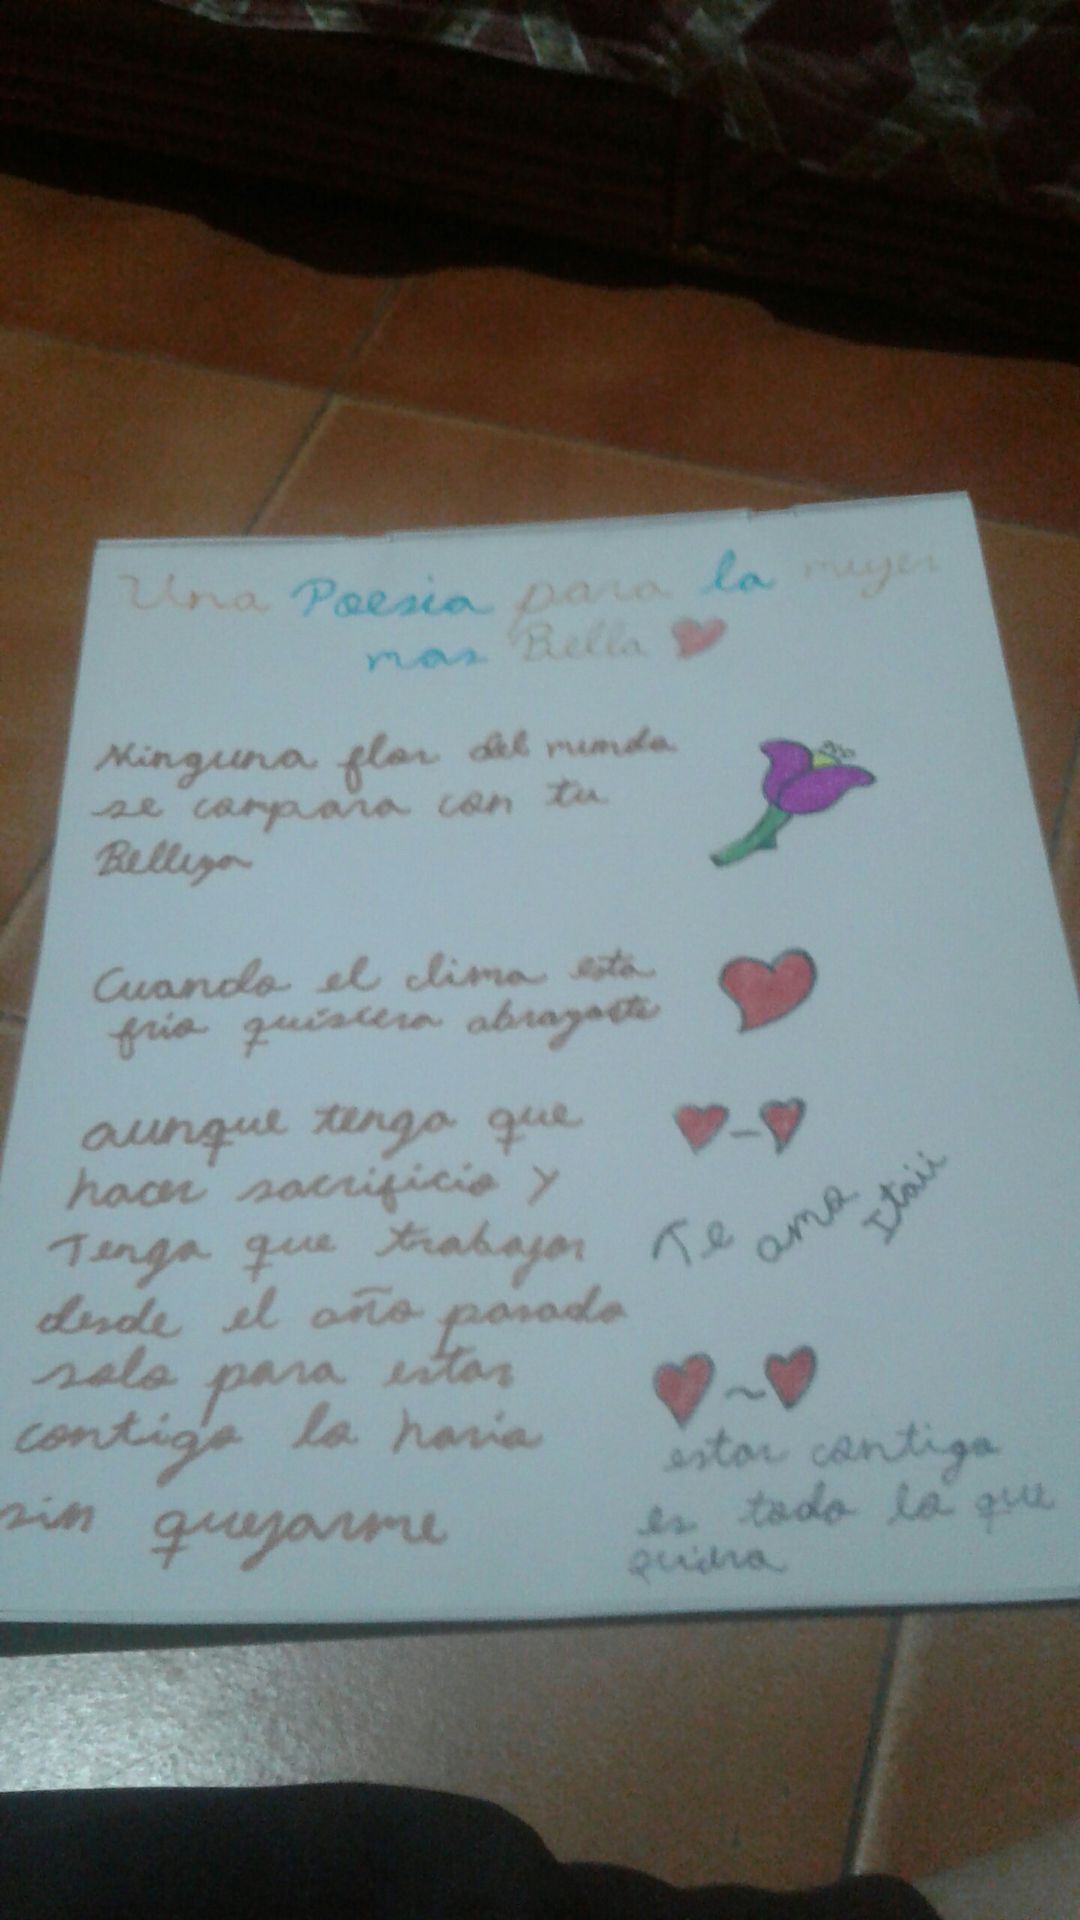 Una Poesia para la mujer
mas Bella
Ninguna flor del mundo
se compara con tu
Belleza
Cuando el clima esta
frio quisiera abrazarte
aunque tenga que
hacer sacrificio y
Tenga que trabajar
desde el año pasado
solo para estar
contigo lo haria
sin quejarme
Te amo Itaii
estar contigo
es todo lo que
quiero